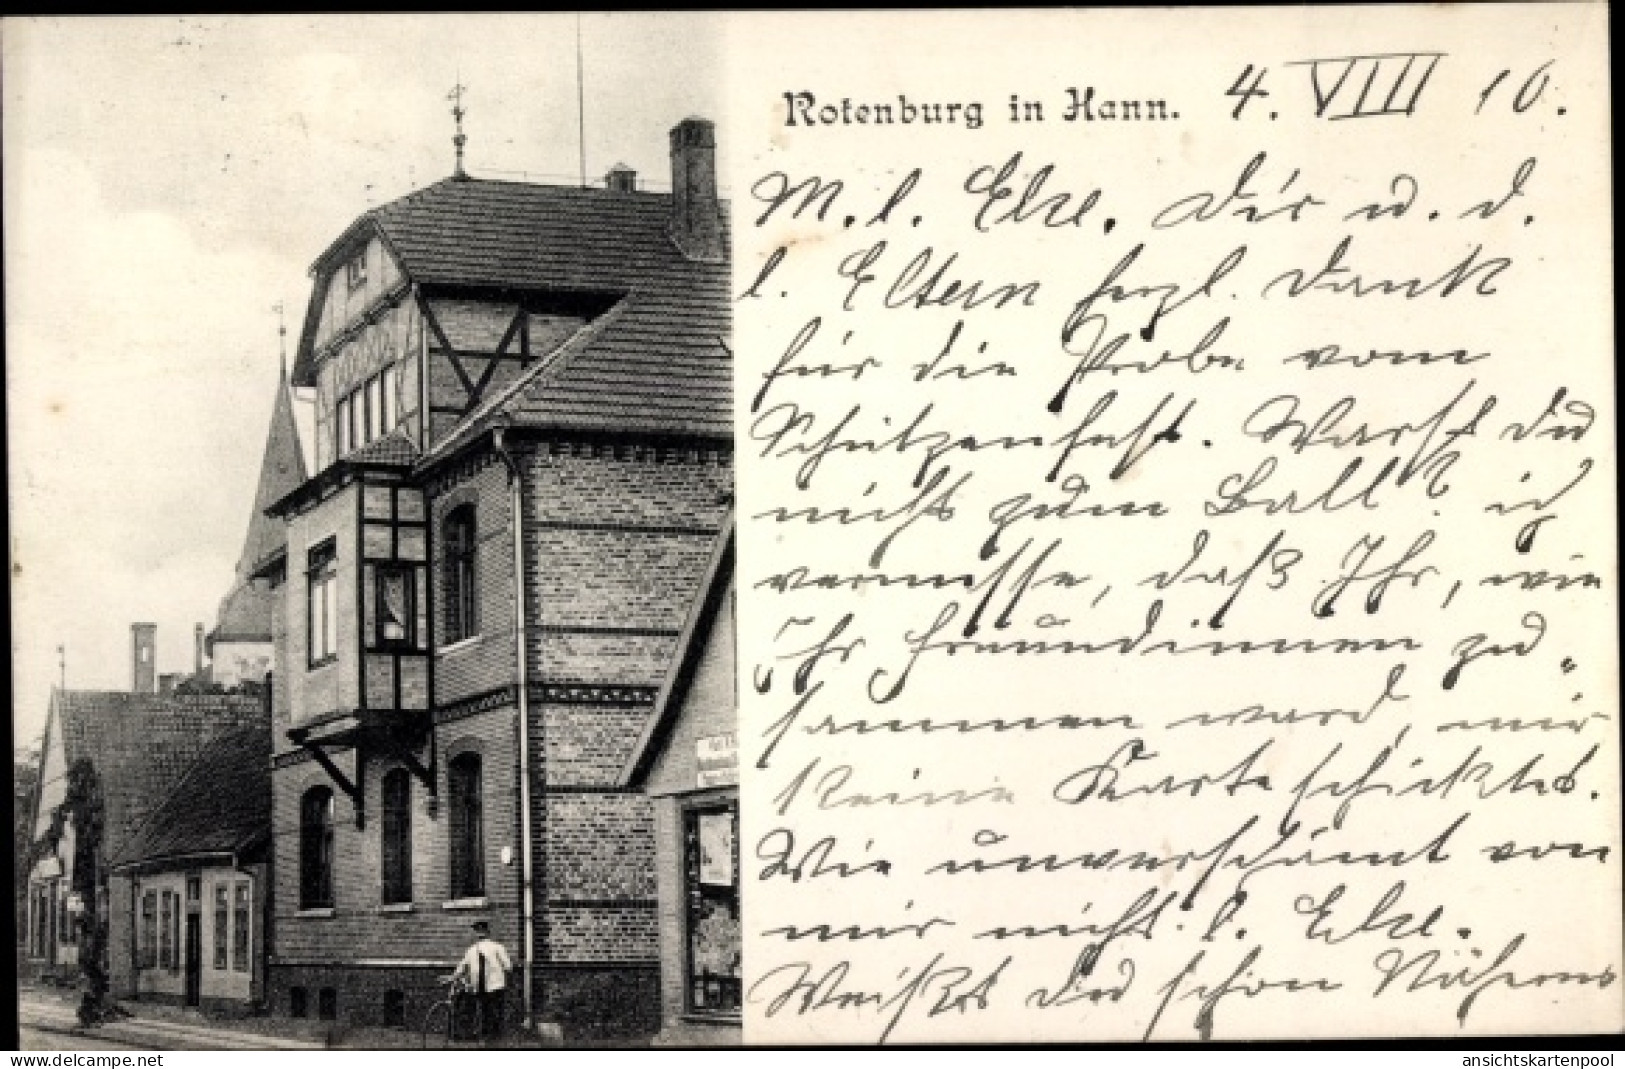 Rotenburg in Hann. 4. VIII 10.
M. l. Else. Dir u. d.
l. Eltern herzl. Dank
für die Probe vom
Schützenfest. Warst Du
nicht zum Ball? ich
vermisse, daß Ihr, wie
Ihr Freundinnen zu
sammen ward, mir
keine Karte schicktet.
Wie unverschämt von
mir nicht. l. Else.
Weißt Du schon Näheres
delcampe.net
ansichtskartenpool